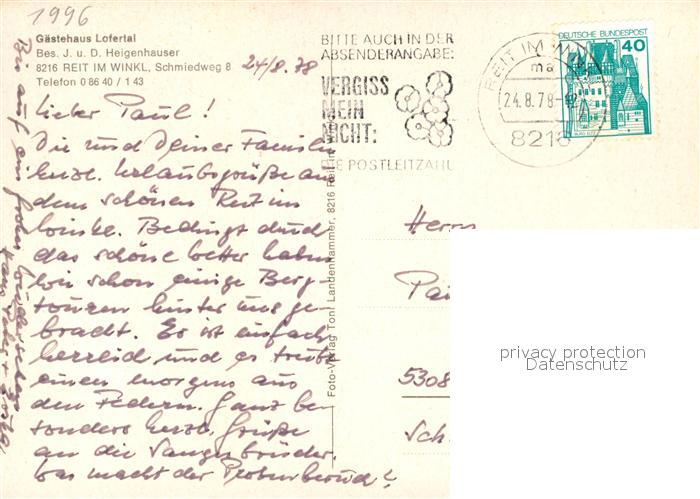 1996
Gästehaus Lofertal
Bes. J. u. D. Heigenhauser
8216 REIT IM WINKL, Schmiedweg 8
Telefon 0 86 40 / 1 43
24/8.78
Lieber Paul!
Dir und Deiner Familie
herzl. Urlaubsgrüße aus
dem schönen Reit im
Winkl. Bedingt durch
das schöne Wetter haben
wir schon einige Berg-
touren hinter uns ge-
bracht. Es ist einfach
herrlich und es treibt
einen morgens aus
den Federn. Ganz be-
sonders herzl. Grüße
an die Sangesbrüder.
Was macht der Probenbesuch?
Bis auf ein frohes
Foto-Verlag Toni Landenhammer, 8216 Reit im
BITTE AUCH IN DER
ABSENDERANGABE:
VERGISS
MEIN
NICHT:
DIE POSTLEITZAHL
REIT IM WINKL
24.8.78
8216
DEUTSCHE BUNDESPOST
40
BURG ELTZ
Herrn
5308
privacy protection
Datenschutz